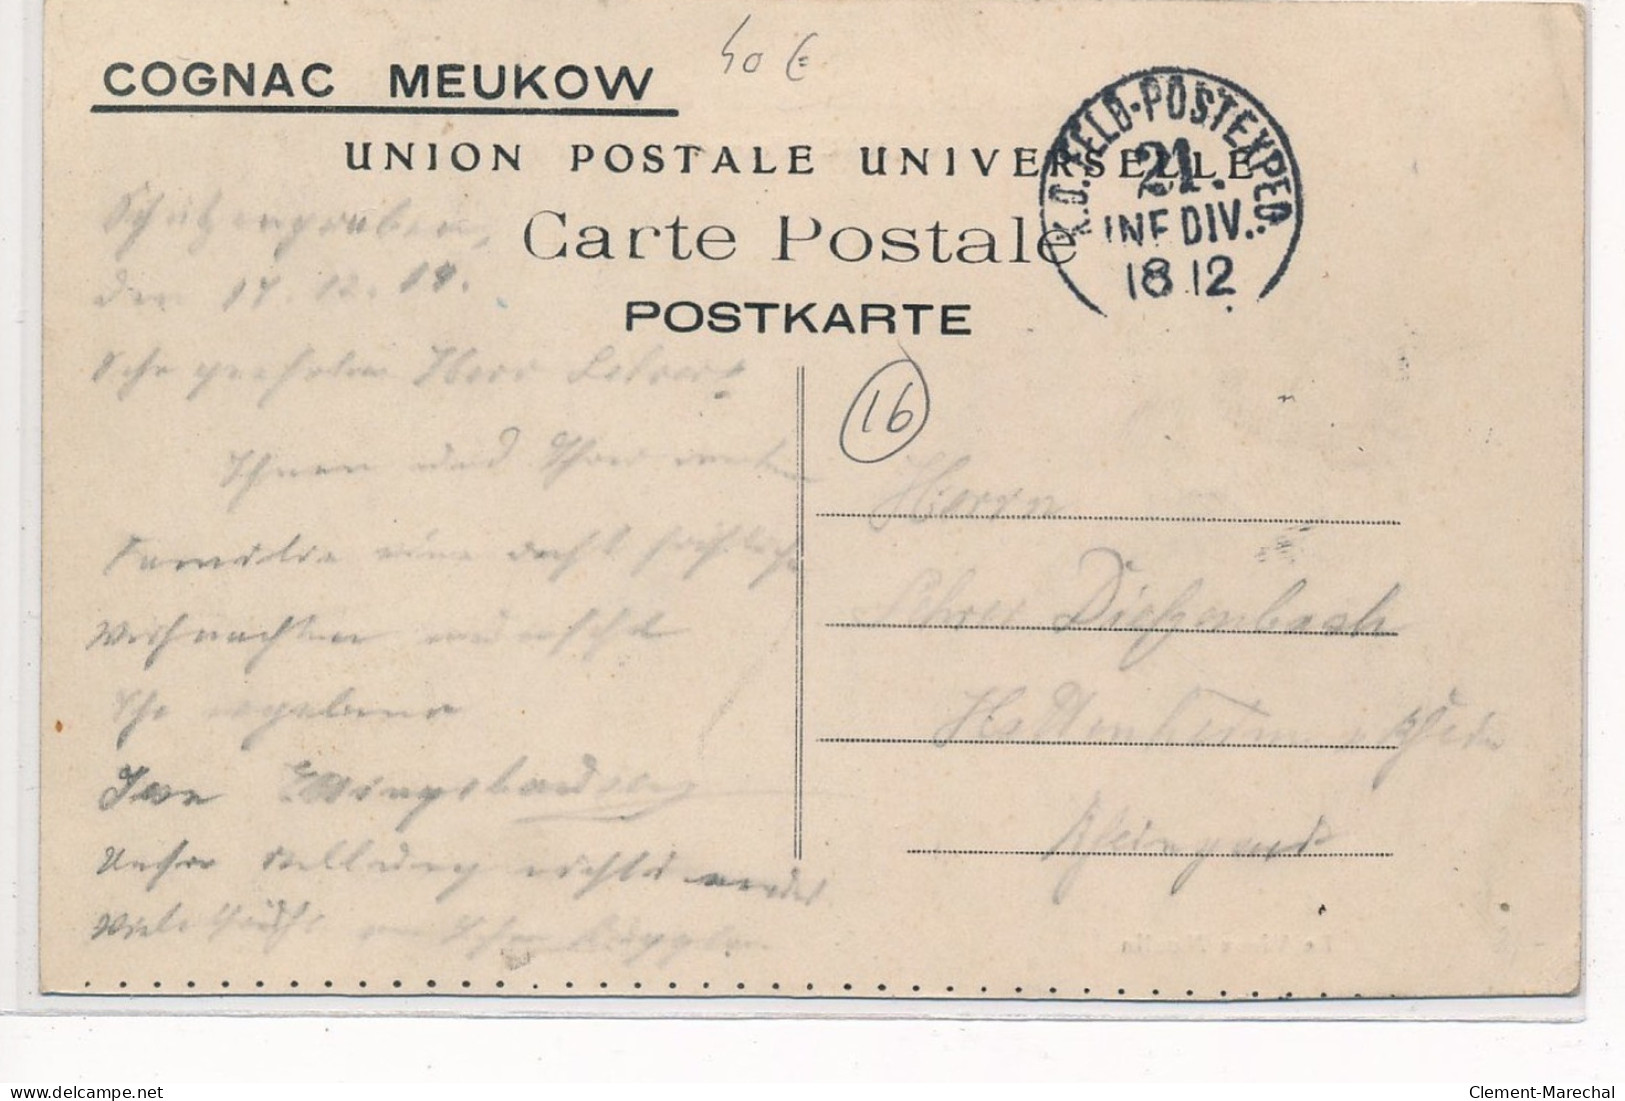 COGNAC MEUKOW
40 €
UNION POSTALE UNIVERSELLE
Carte Postale
POSTKARTE
K.D. FELD-POSTEXPED.
21.
INF DIV.
18 12
16
Schützengraben,
den 17. 12. 14.
Sehr geehrter Herr Lehrer!
Ihnen und Ihrer werten
Familie eine recht fröhliche
Weihnachten wünscht
Ihr ergebener
Unsere Stellung nichts
Viele Grüße an
Herrn
Lehrer Diefenbach
Hattenheim a/Rhein
Rheingau
delcampe.net
Clement-Marechal